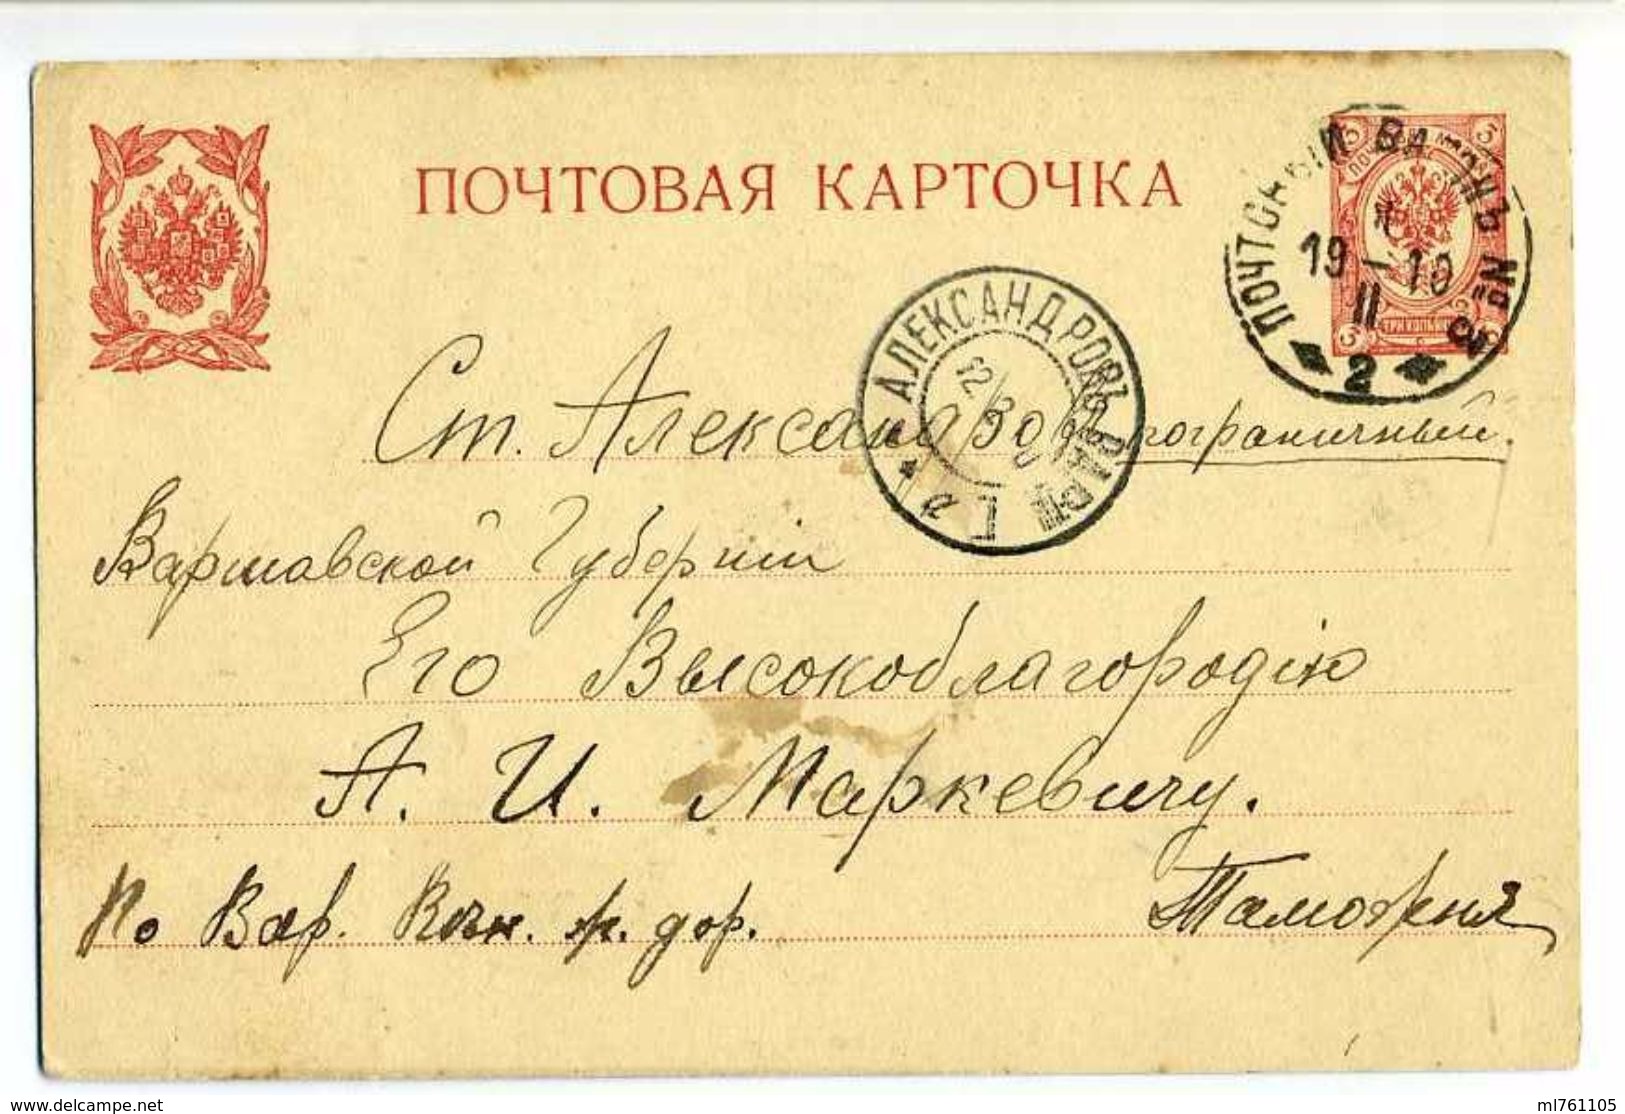 ПОЧТОВАЯ КАРТОЧКА
ПОЧТОВЫЙ ВАГОНЪ № 2
19-10
II
АЛЕКСАНДРОВЪ ВАРШ
12
Ст. Александровъ пограничный.
Варшавской Губерніи
Его Высокоблагородію
А. И. Маркевичу.
По Вар. Вѣн. ж. дор.
Таможня
www.delcampe.net
ml761105